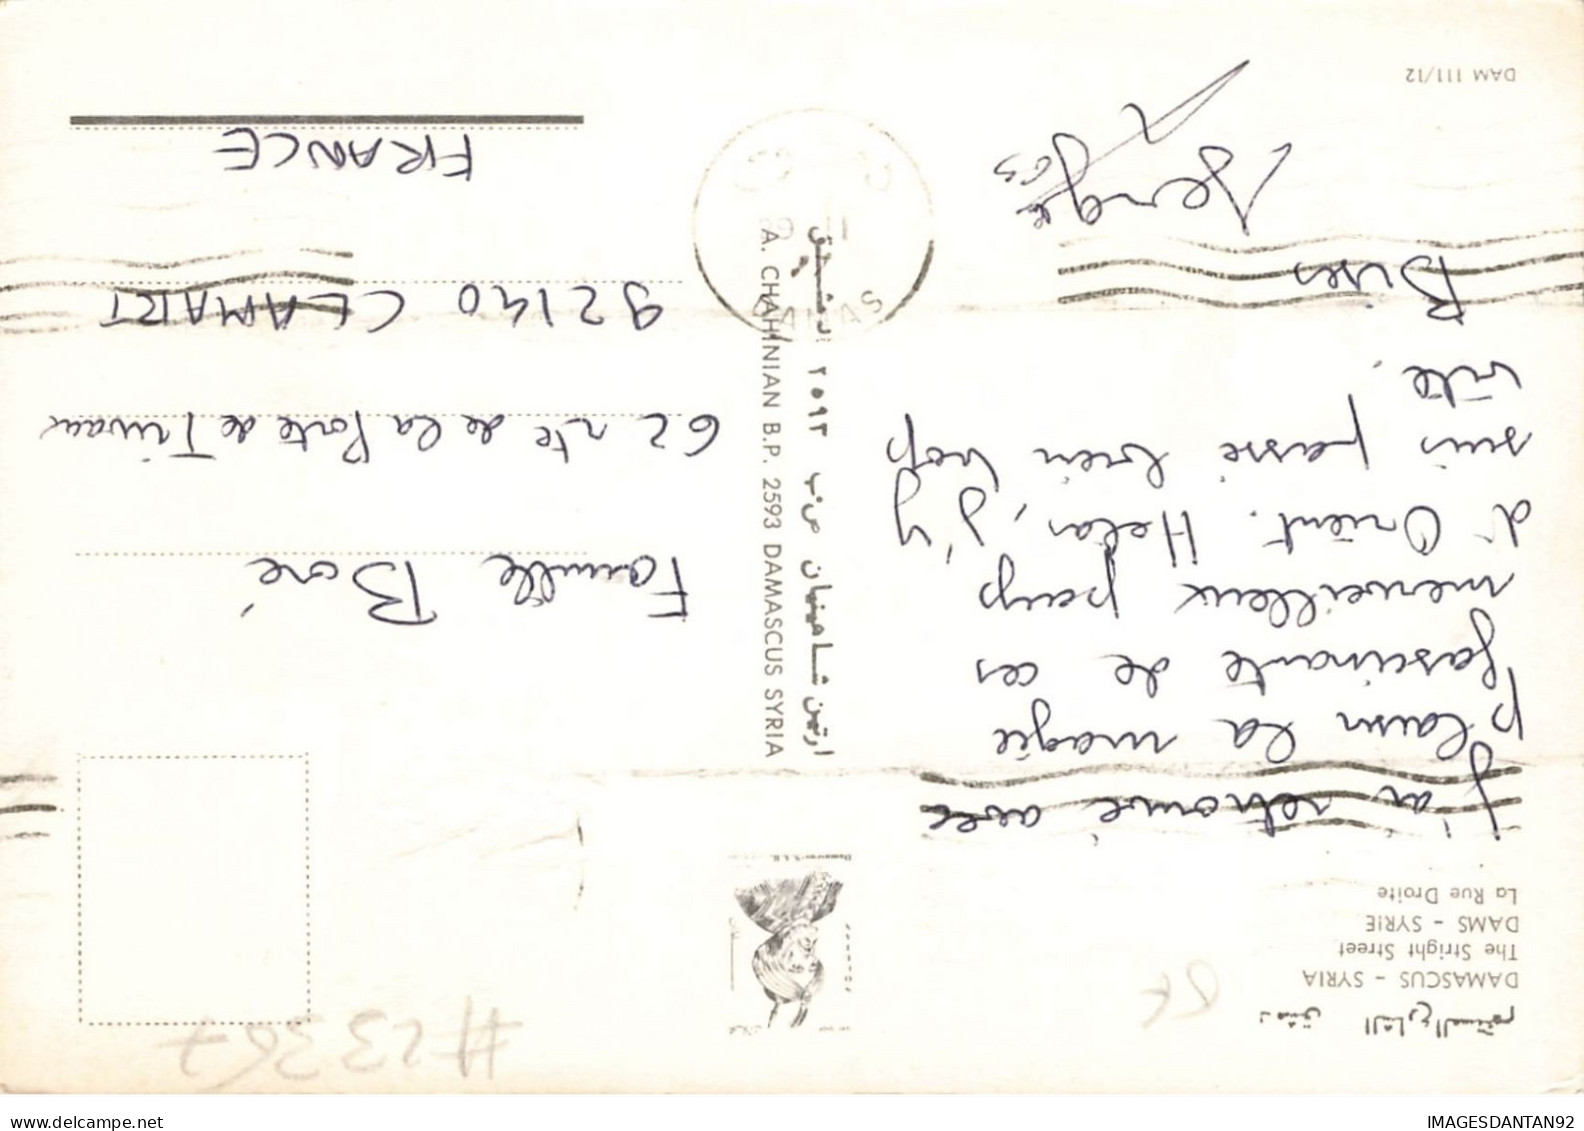 دمشق الشارع المستقيم
DAMASCUS - SYRIA
The Stright Street
DAMS - SYRIE
La Rue Droite
J'ai retrouvé avec
plaisir la magie
fascinante de ces
merveilleux pays
d'Orient. Helas, j'y
suis passé bien trop
vite.
Bises
Serge
DAM 111/12
ارتين شاهينيان ص.ب ٢٥٩٣ دمشق
A. CHAHINIAN B.P. 2593 DAMASCUS SYRIA
Famille Boré
62 rte de la Porte de Trivaux
92140 CLAMART
FRANCE
DAMAS
#23367
delcampe.net
IMAGESDANTAN92